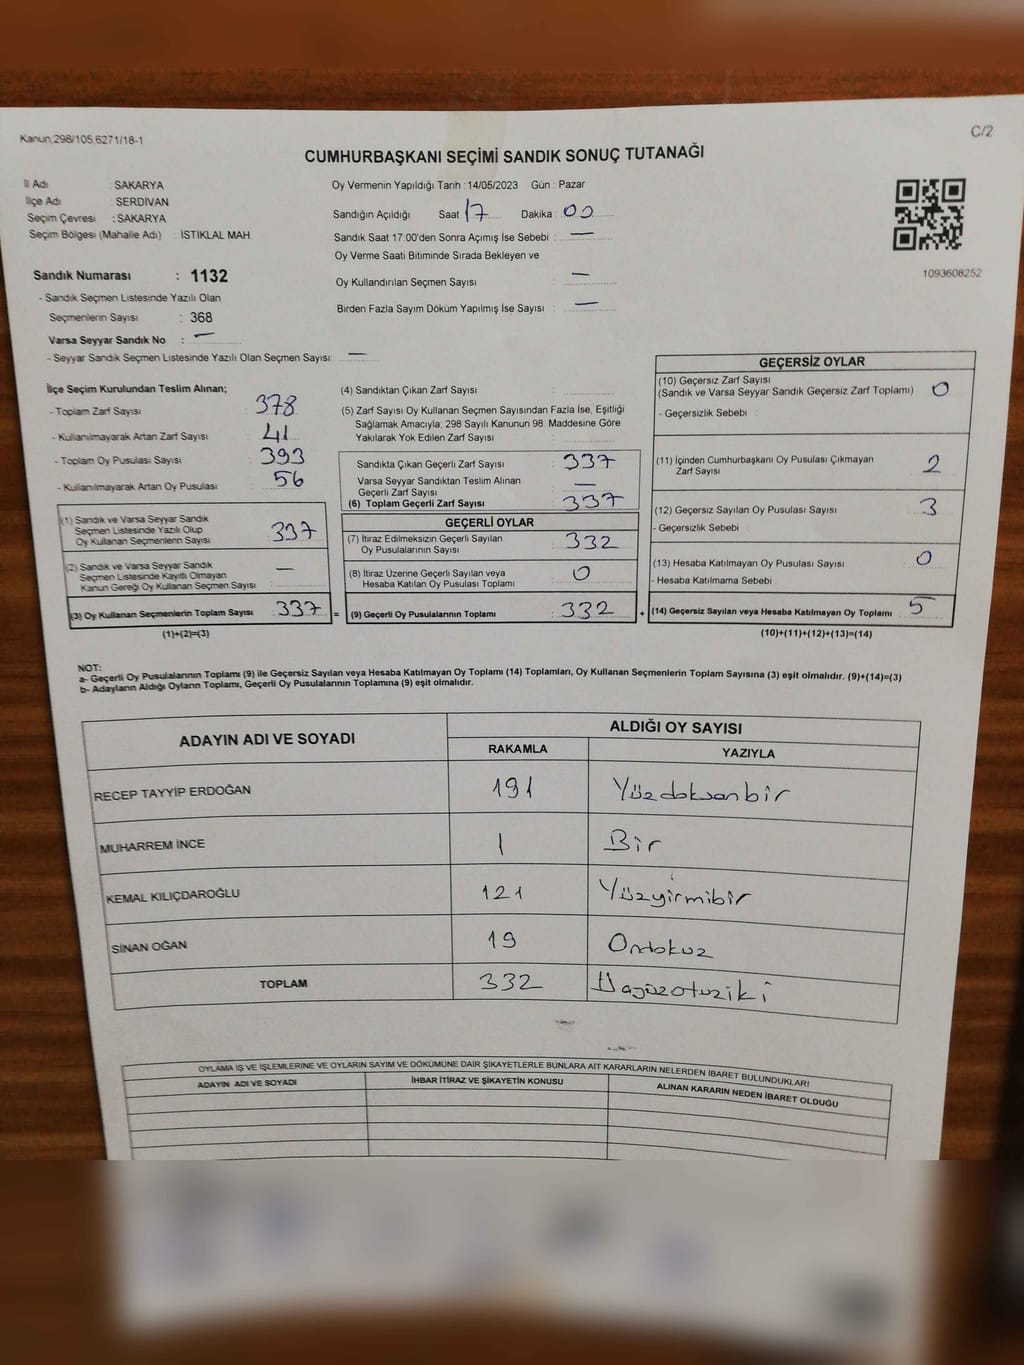 Kanun,298/105,6271/18-1
C/2
CUMHURBAŞKANI SEÇİMİ SANDIK SONUÇ TUTANAĞI
İl Adı SAKARYA
İlçe Adı : SERDİVAN
Seçim Çevresi : SAKARYA
Seçim Bölgesi (Mahalle Adı) : İSTİKLAL MAH.
Sandık Numarası : 1132
- Sandık Seçmen Listesinde Yazılı Olan
Seçmenlerin Sayısı : 368
Varsa Seyyar Sandık No : —
- Seyyar Sandık Seçmen Listesinde Yazılı Olan Seçmen Sayısı: —
Oy Vermenin Yapıldığı Tarih : 14/05/2023 Gün : Pazar
Sandığın Açıldığı Saat 17 Dakika : 00
Sandık Saat 17:00'den Sonra Açımış İse Sebebi : —
Oy Verme Saati Bitiminde Sırada Bekleyen ve
Oy Kullandırılan Seçmen Sayısı : —
Birden Fazla Sayım Döküm Yapılmış İse Sayısı : —
1093608252
İlçe Seçim Kurulundan Teslim Alınan;
- Toplam Zarf Sayısı 378
- Kullanılmayarak Artan Zarf Sayısı 41
- Toplam Oy Pusulası Sayısı 393
- Kullanılmayarak Artan Oy Pusulası 56
(1) Sandık ve Varsa Seyyar Sandık
Seçmen Listesinde Yazılı Olup
Oy Kullanan Seçmenlerin Sayısı : 337
(2) Sandık ve Varsa Seyyar Sandık
Seçmen Listesinde Kayıtlı Olmayan
Kanun Gereği Oy Kullanan Seçmen Sayısı : —
(3) Oy Kullanan Seçmenlerin Toplam Sayısı : 337 =
(1)+(2)=(3)
(4) Sandıktan Çıkan Zarf Sayısı :
(5) Zarf Sayısı Oy Kullanan Seçmen Sayısından Fazla İse, Eşitliği
Sağlamak Amacıyla; 298 Sayılı Kanunun 98. Maddesine Göre
Yakılarak Yok Edilen Zarf Sayısı :
Sandıkta Çıkan Geçerli Zarf Sayısı : 337
Varsa Seyyar Sandıktan Teslim Alınan
Geçerli Zarf Sayısı : —
(6) Toplam Geçerli Zarf Sayısı : 337
GEÇERLİ OYLAR
(7) İtiraz Edilmeksizin Geçerli Sayılan
Oy Pusulalarının Sayısı : 332
(8) İtiraz Üzerine Geçerli Sayılan veya
Hesaba Katılan Oy Pusulası Toplamı : 0
(9) Geçerli Oy Pusulalarının Toplamı : 332 +
GEÇERSİZ OYLAR
(10) Geçersiz Zarf Sayısı
(Sandık ve Varsa Seyyar Sandık Geçersiz Zarf Toplamı) : 0
- Geçersizlik Sebebi :
(11) İçinden Cumhurbaşkanı Oy Pusulası Çıkmayan
Zarf Sayısı 2
(12) Geçersiz Sayılan Oy Pusulası Sayısı : 3
- Geçersizlik Sebebi :
(13) Hesaba Katılmayan Oy Pusulası Sayısı : 0
- Hesaba Katılmama Sebebi :
(14) Geçersiz Sayılan veya Hesaba Katılmayan Oy Toplamı : 5
(10)+(11)+(12)+(13)=(14)
NOT:
a- Geçerli Oy Pusulalarının Toplamı (9) ile Geçersiz Sayılan veya Hesaba Katılmayan Oy Toplamı (14) Toplamları, Oy Kullanan Seçmenlerin Toplam Sayısına (3) eşit olmalıdır. (9)+(14)=(3)
b- Adayların Aldığı Oyların Toplamı, Geçerli Oy Pusulalarının Toplamına (9) eşit olmalıdır.
ADAYIN ADI VE SOYADI ALDIĞI OY SAYISI
RAKAMLA YAZIYLA
RECEP TAYYİP ERDOĞAN 191 Yüzdoksanbir
MUHARREM İNCE 1 Bir
KEMAL KILIÇDAROĞLU 121 Yüzyirmibir
SİNAN OĞAN 19 Ondokuz
TOPLAM 332 Üçyüzotuziki
OYLAMA İŞ VE İŞLEMLERİNE VE OYLARIN SAYIM VE DÖKÜMÜNE DAİR ŞİKAYETLERLE BUNLARA AİT KARARLARIN NELERDEN İBARET BULUNDUKLARI
ADAYIN ADI VE SOYADI İHBAR İTİRAZ VE ŞİKAYETİN KONUSU ALINAN KARARIN NEDEN İBARET OLDUĞU